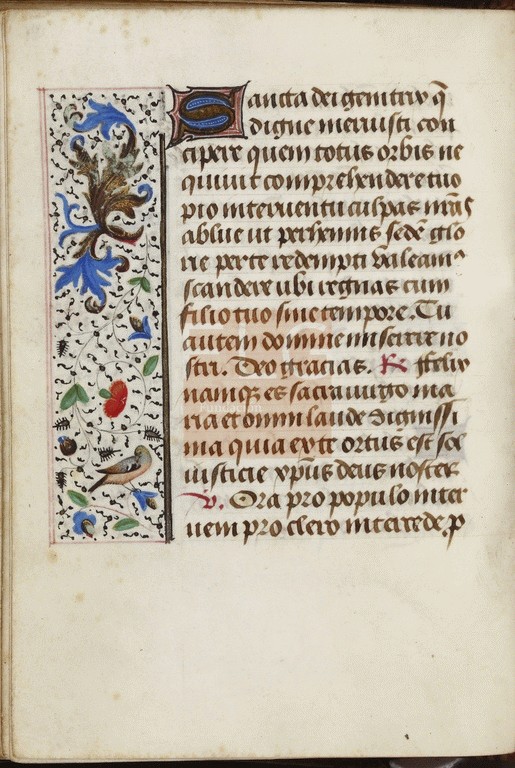 Sancta dei genitrix q̃
digne meruisti con
cipere quem totus orbis ne
quiuit comprehendere tuo
pio interuentu culpas nr̃as
ablue ut perhennis sedẽ glo
rie per te redempti valeamꝰ
scandere ubi regnas cum
filio tuo sine tempore. Tu
autem domine miserere no
stri. Deo gracias. R̶ ffelix
namqꝫ es sacra uirgo ma
ria et omni laude dignissi
ma quia ex te ortus est sol
iusticie xp̃us deus noster
v. Ora pro populo inter
ueni pro clero intercede p